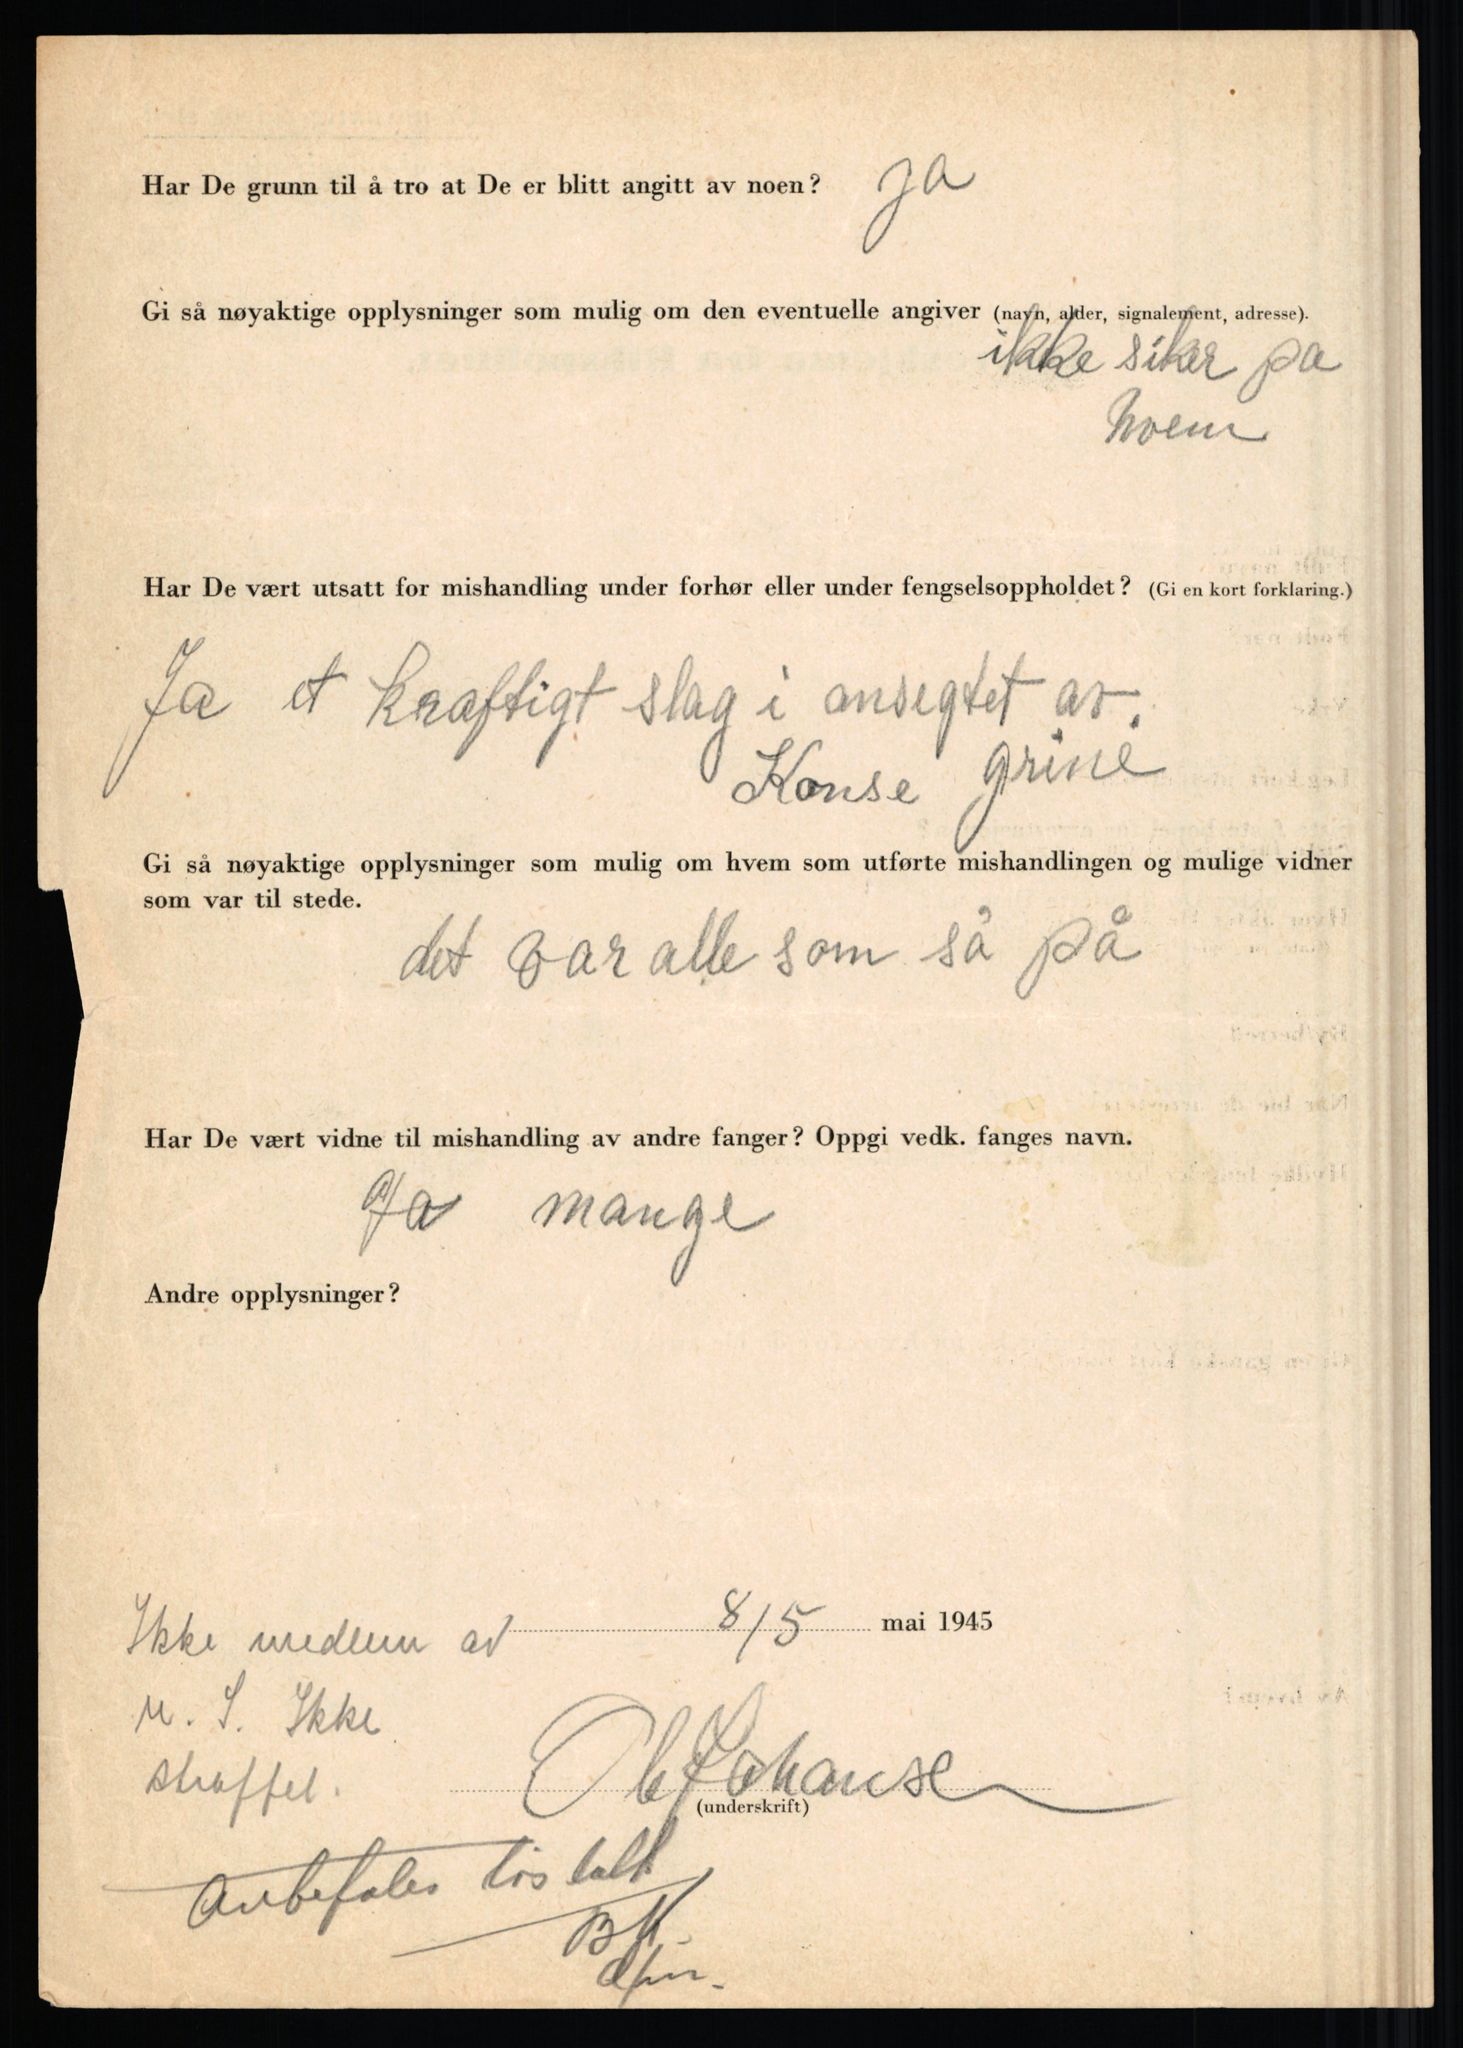 Har De grunn til å tro at De er blitt angitt av noen? ja
Gi så nøyaktige opplysninger som mulig om den eventuelle angiver (navn, alder, signalement, adresse).
ikke siker på
hvem
Har De vært utsatt for mishandling under forhør eller under fengselsoppholdet? (Gi en kort forklaring.)
Ja et kraftigt slag i ansegtet av.
Konse grine
Gi så nøyaktige opplysninger som mulig om hvem som utførte mishandlingen og mulige vidner
som var til stede.
det var alle som så på
Har De vært vidne til mishandling av andre fanger? Oppgi vedk. fanges navn.
Ja mange
Andre opplysninger?
8/5 mai 1945
Ikke medlem av
N. S. Ikke
straffet.
Johanse
(underskrift)
Anbefales løslatt
BK.